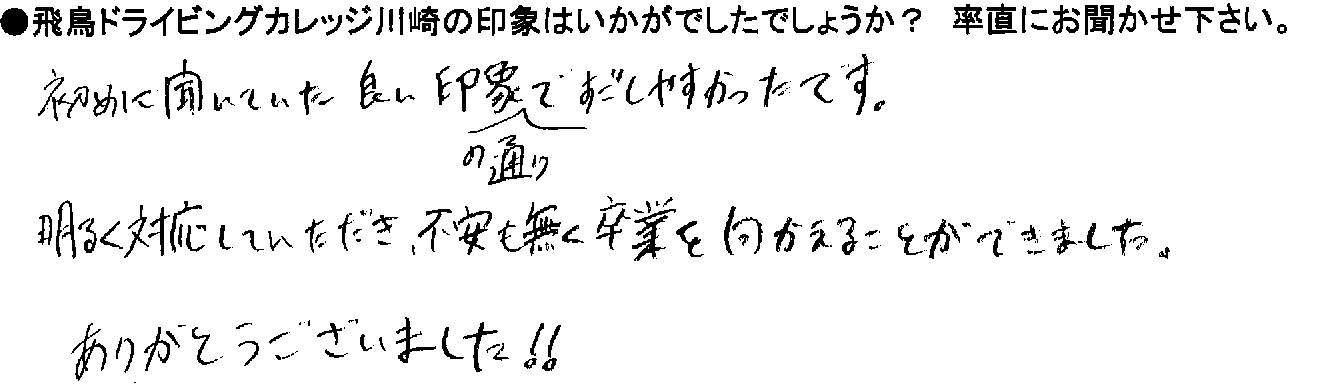 ●飛鳥ドライビングカレッジ川崎の印象はいかがでしたでしょうか？ 率直にお聞かせ下さい。
初めに聞いていた良い印象ですごしやすかったです。
の通り
明るく対応していただき、不安も無く卒業を向かえることができました。
ありがとうございました!!